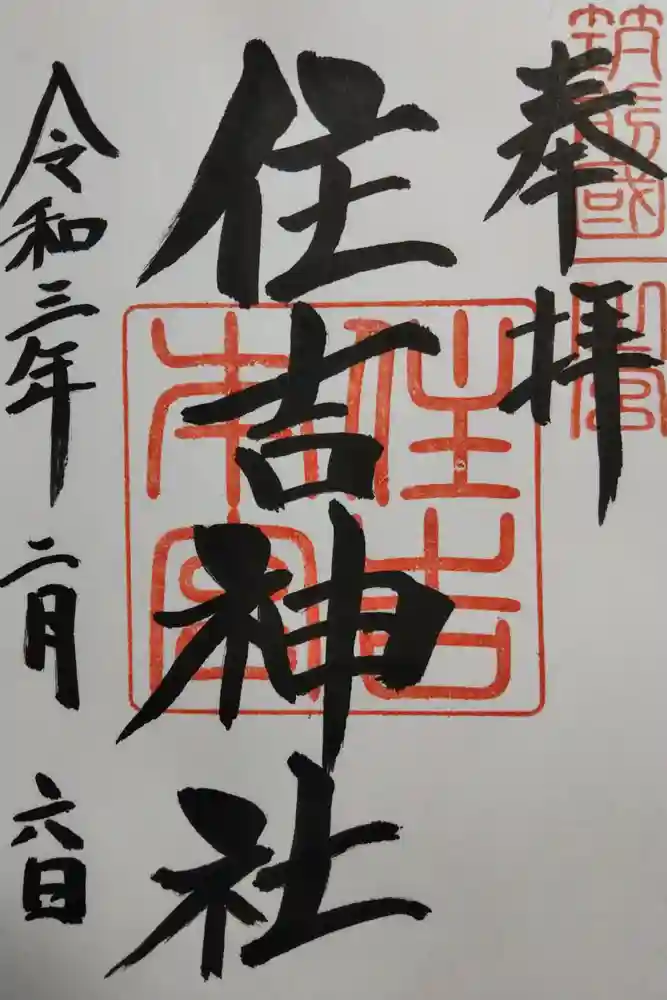 奉拝
筑前國一之宮
住吉神社
住吉本宮
令和三年 二月 六日